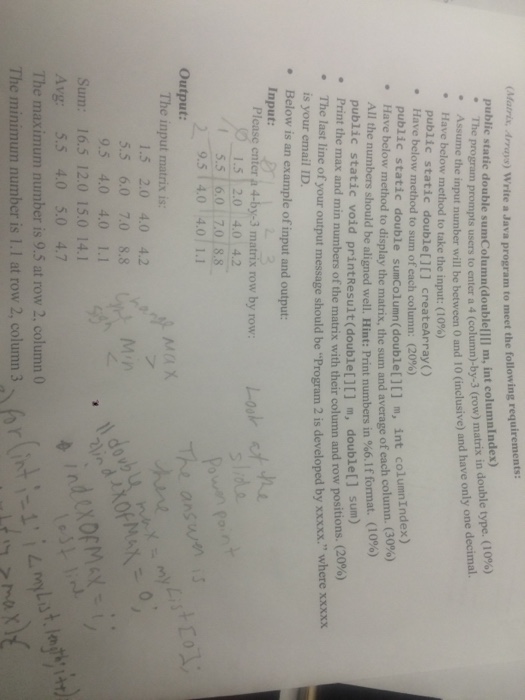 (Matrix Arrays) Write a Java program to meet the following requirements:
public static double sumColumn(double[][] m, int columnIndex)
• The program prompts users to enter a 4 (column)-by-3 (row) matrix in double type. (10%)
• Assume the input number will be between 0 and 10 (inclusive) and have only one decimal.
• Have below method to take the input: (10%)
public static double[][] createArray()
• Have below method to sum of each column: (20%)
public static double sumColumn(double[][] m, int columnIndex)
• Have below method to display the matrix, the sum and average of each column. (30%)
All the numbers should be aligned well. Hint: Print numbers in %6.1f format. (10%)
public static void printResult(double[][] m, double[] sum)
• Print the max and min numbers of the matrix with their column and row positions. (20%)
• The last line of your output message should be "Program 2 is developed by xxxxx," where xxxxx
is your email ID.
• Below is an example of input and output:
Input:
Please enter a 4-by-3 matrix row by row:
0 1 2 3
0 1.5 2.0 4.0 4.2
1 5.5 6.0 7.0 8.8
2 9.5 4.0 4.0 1.1
Look at the
Powerpoint
slide
The answer is
there
Output:
The input matrix is:
1.5 2.0 4.0 4.2
5.5 6.0 7.0 8.8
9.5 4.0 4.0 1.1
Sum: 16.5 12.0 15.0 14.1
Avg: 5.5 4.0 5.0 4.7
The maximum number is 9.5 at row 2, column 0
The minimum number is 1.1 at row 2, column 3
Max
>
Min
<
double max = myList[0];
indexOfMax = 0;
indexOfMax = i;
last line
for (int i = 1; i < myList.length; i++)
> max) {